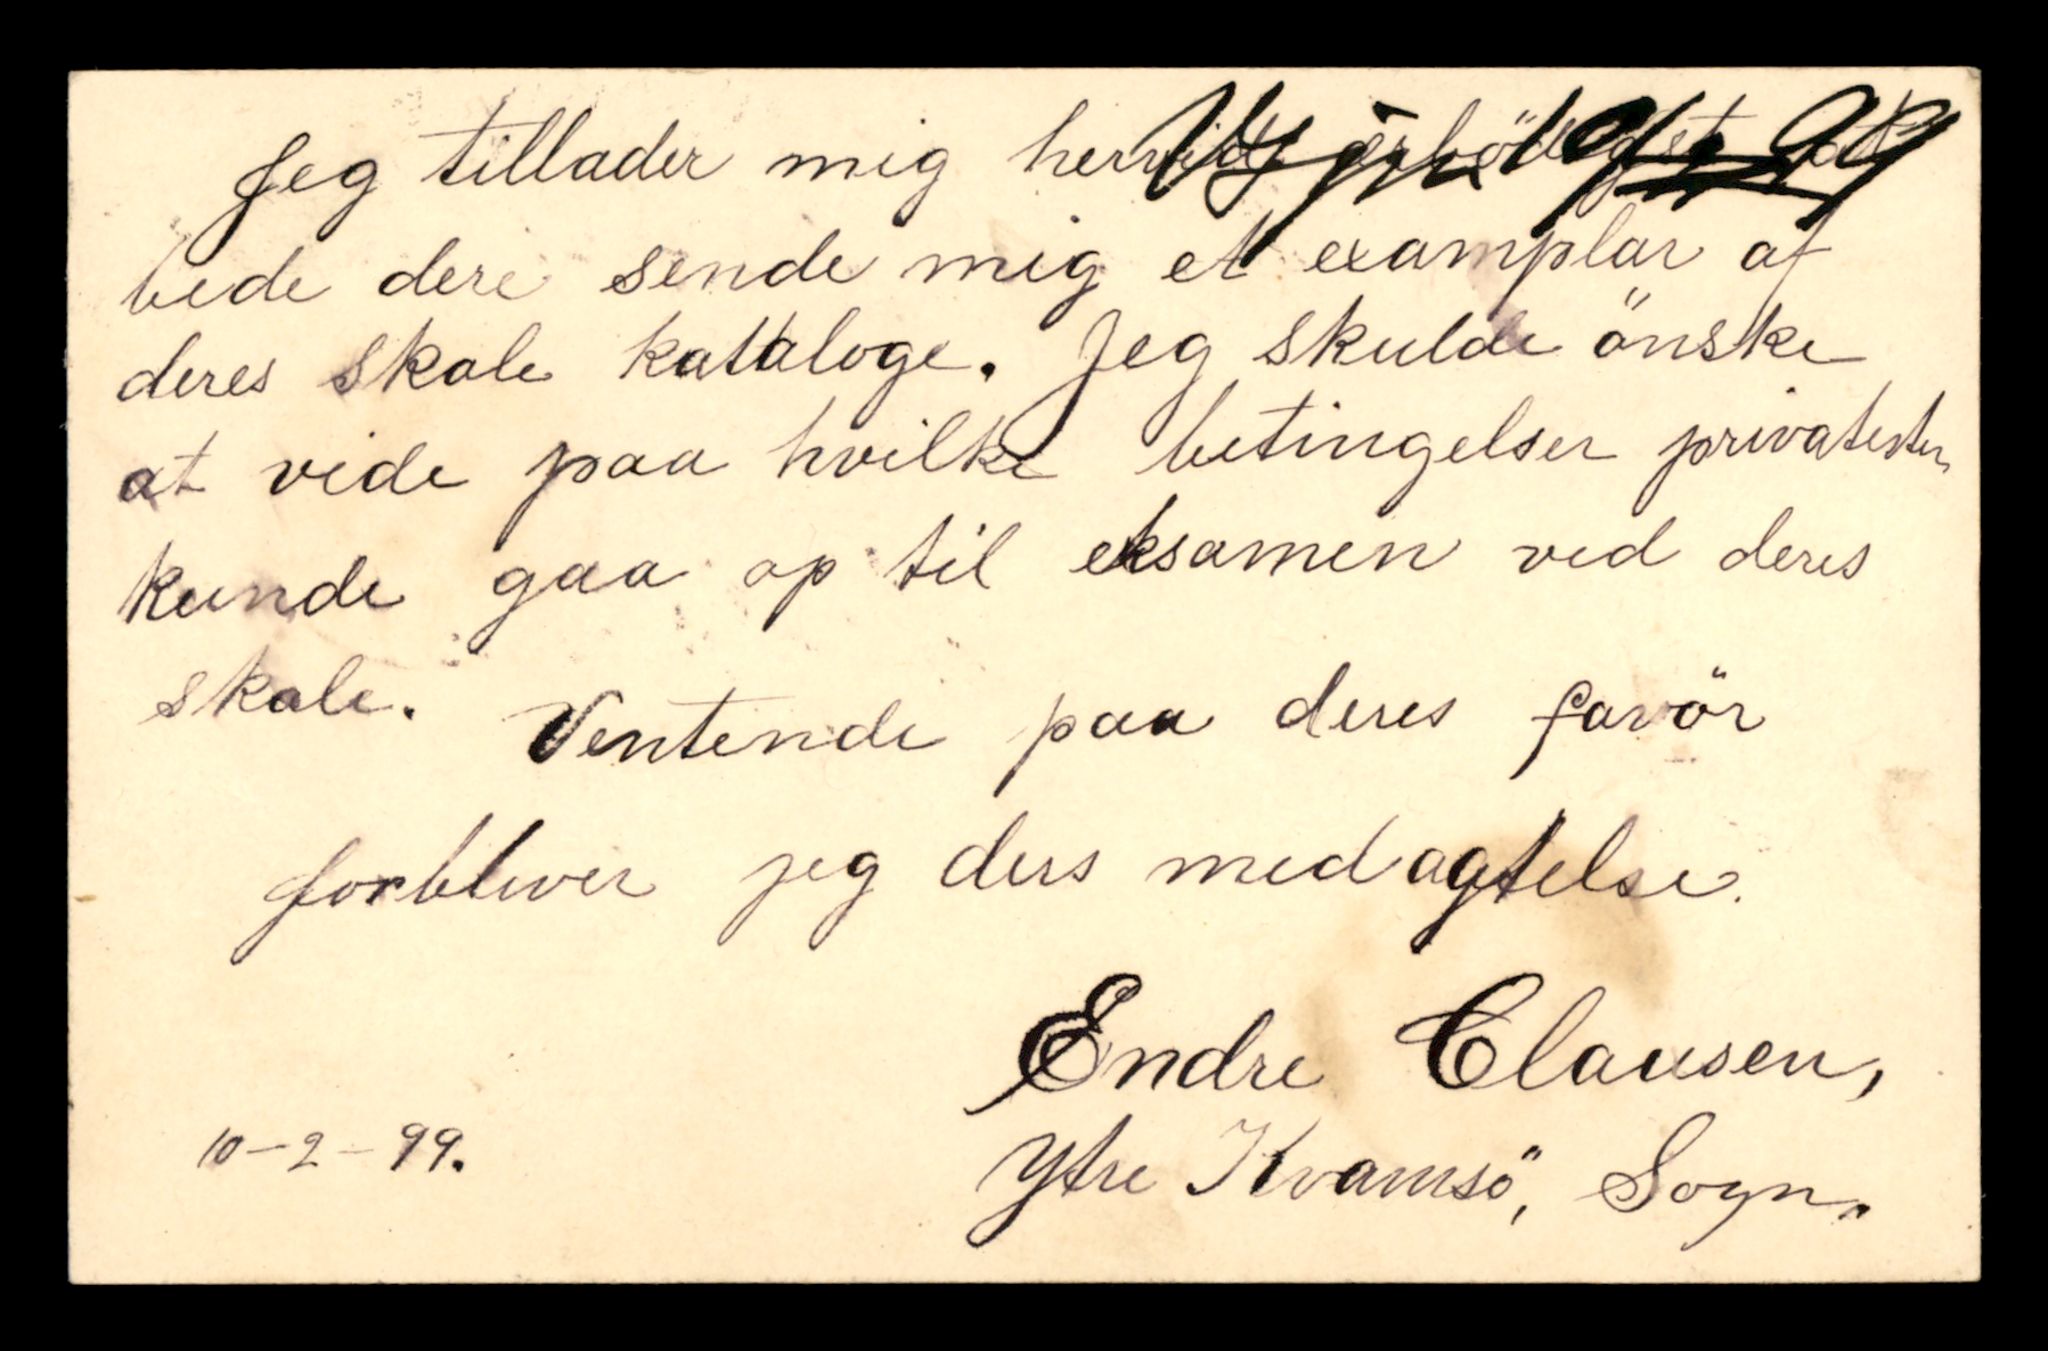 Jeg tillader mig herved ærbödigst at
bede dere sende mig et examplar af
deres skole kataloge. Jeg skulde önske
at vide paa hvilke betingelser
kunde gaa op til eksamen ved deres
skole.
Ventende paa deres favör
forbliver jeg ders med agtelse.
Endre Clausen,
Ytre Kvamsö, Sogn.
10-2-99.